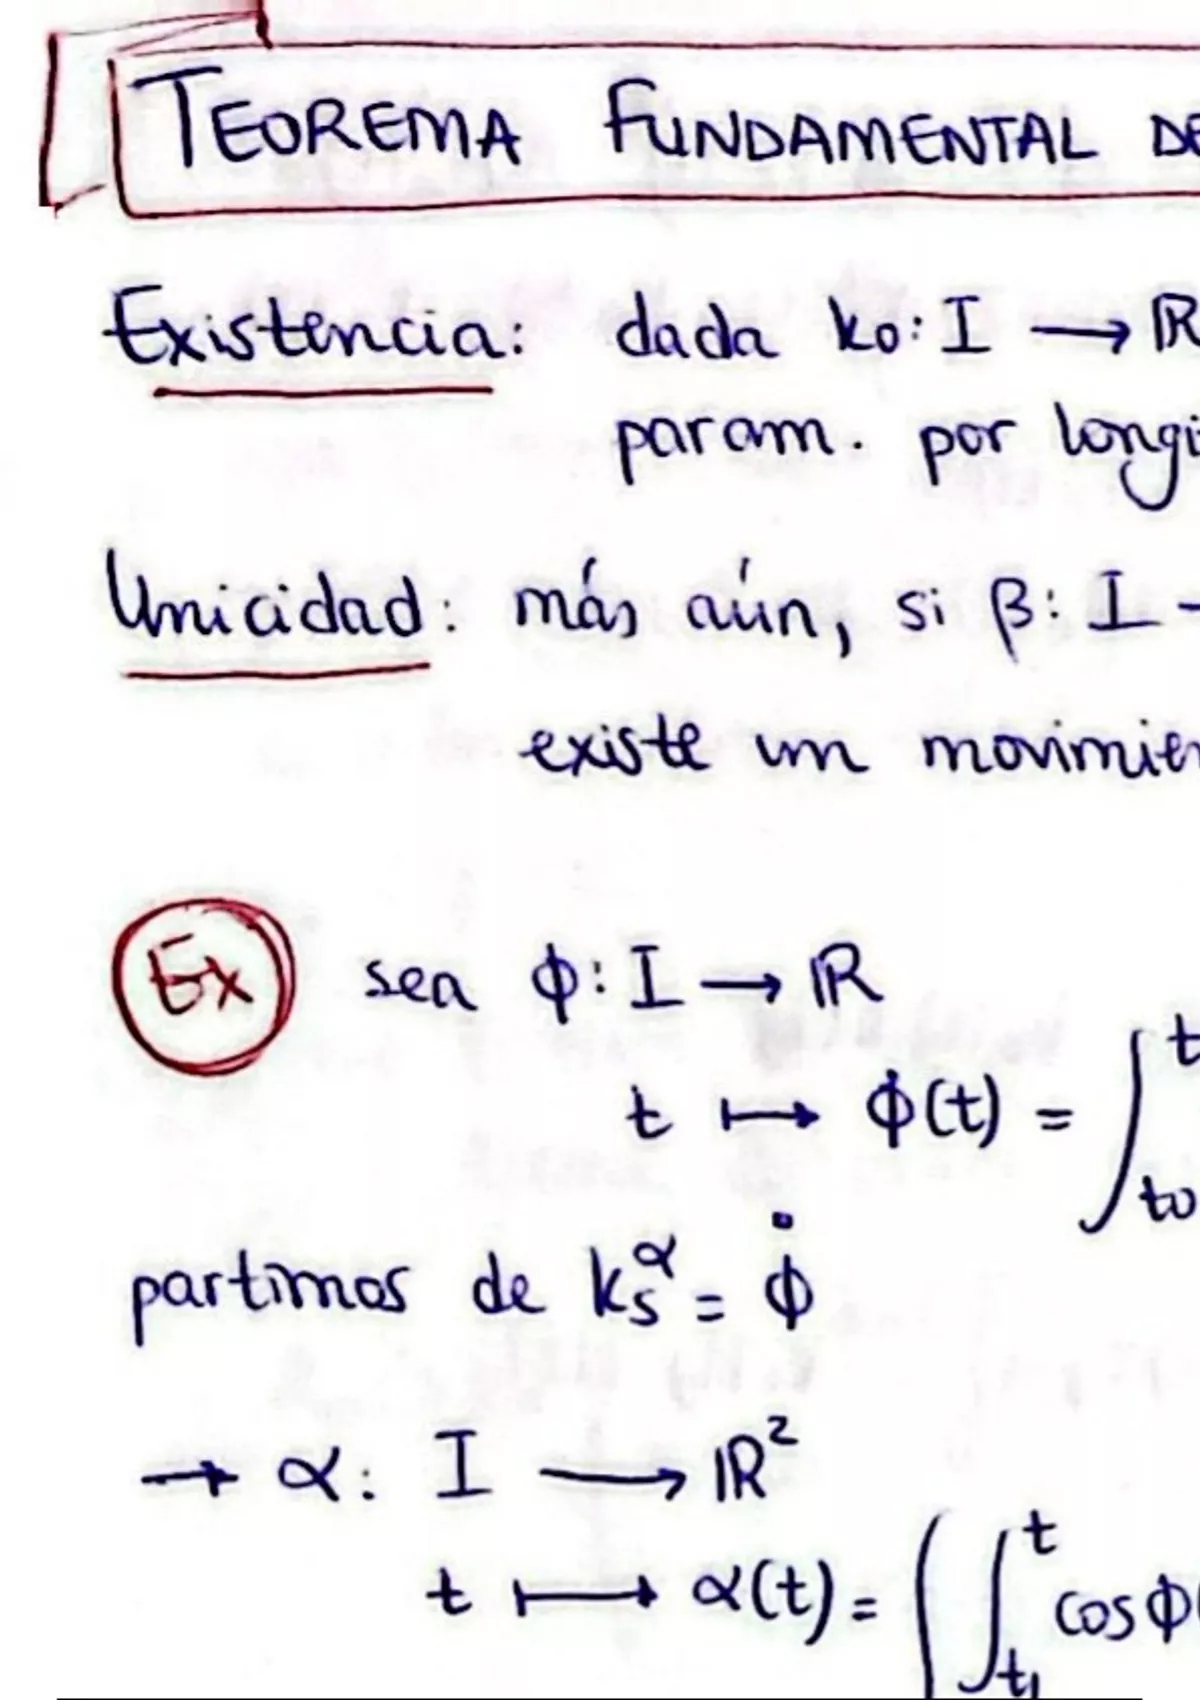 TEOREMA FUNDAMENTAL DE
Existencia: dada ko: I → ℝ
param. por longi
Unicidad: más aún, si β: I -
existe un movimien
Ex sea ϕ: I → ℝ
t ↦ ϕ(t) = ∫_{to}^{t}
partimos de k_s^α = ϕ̇
→ α: I → ℝ²
t ↦ α(t) = ( ∫_{t₁}^{t} cos ϕ(